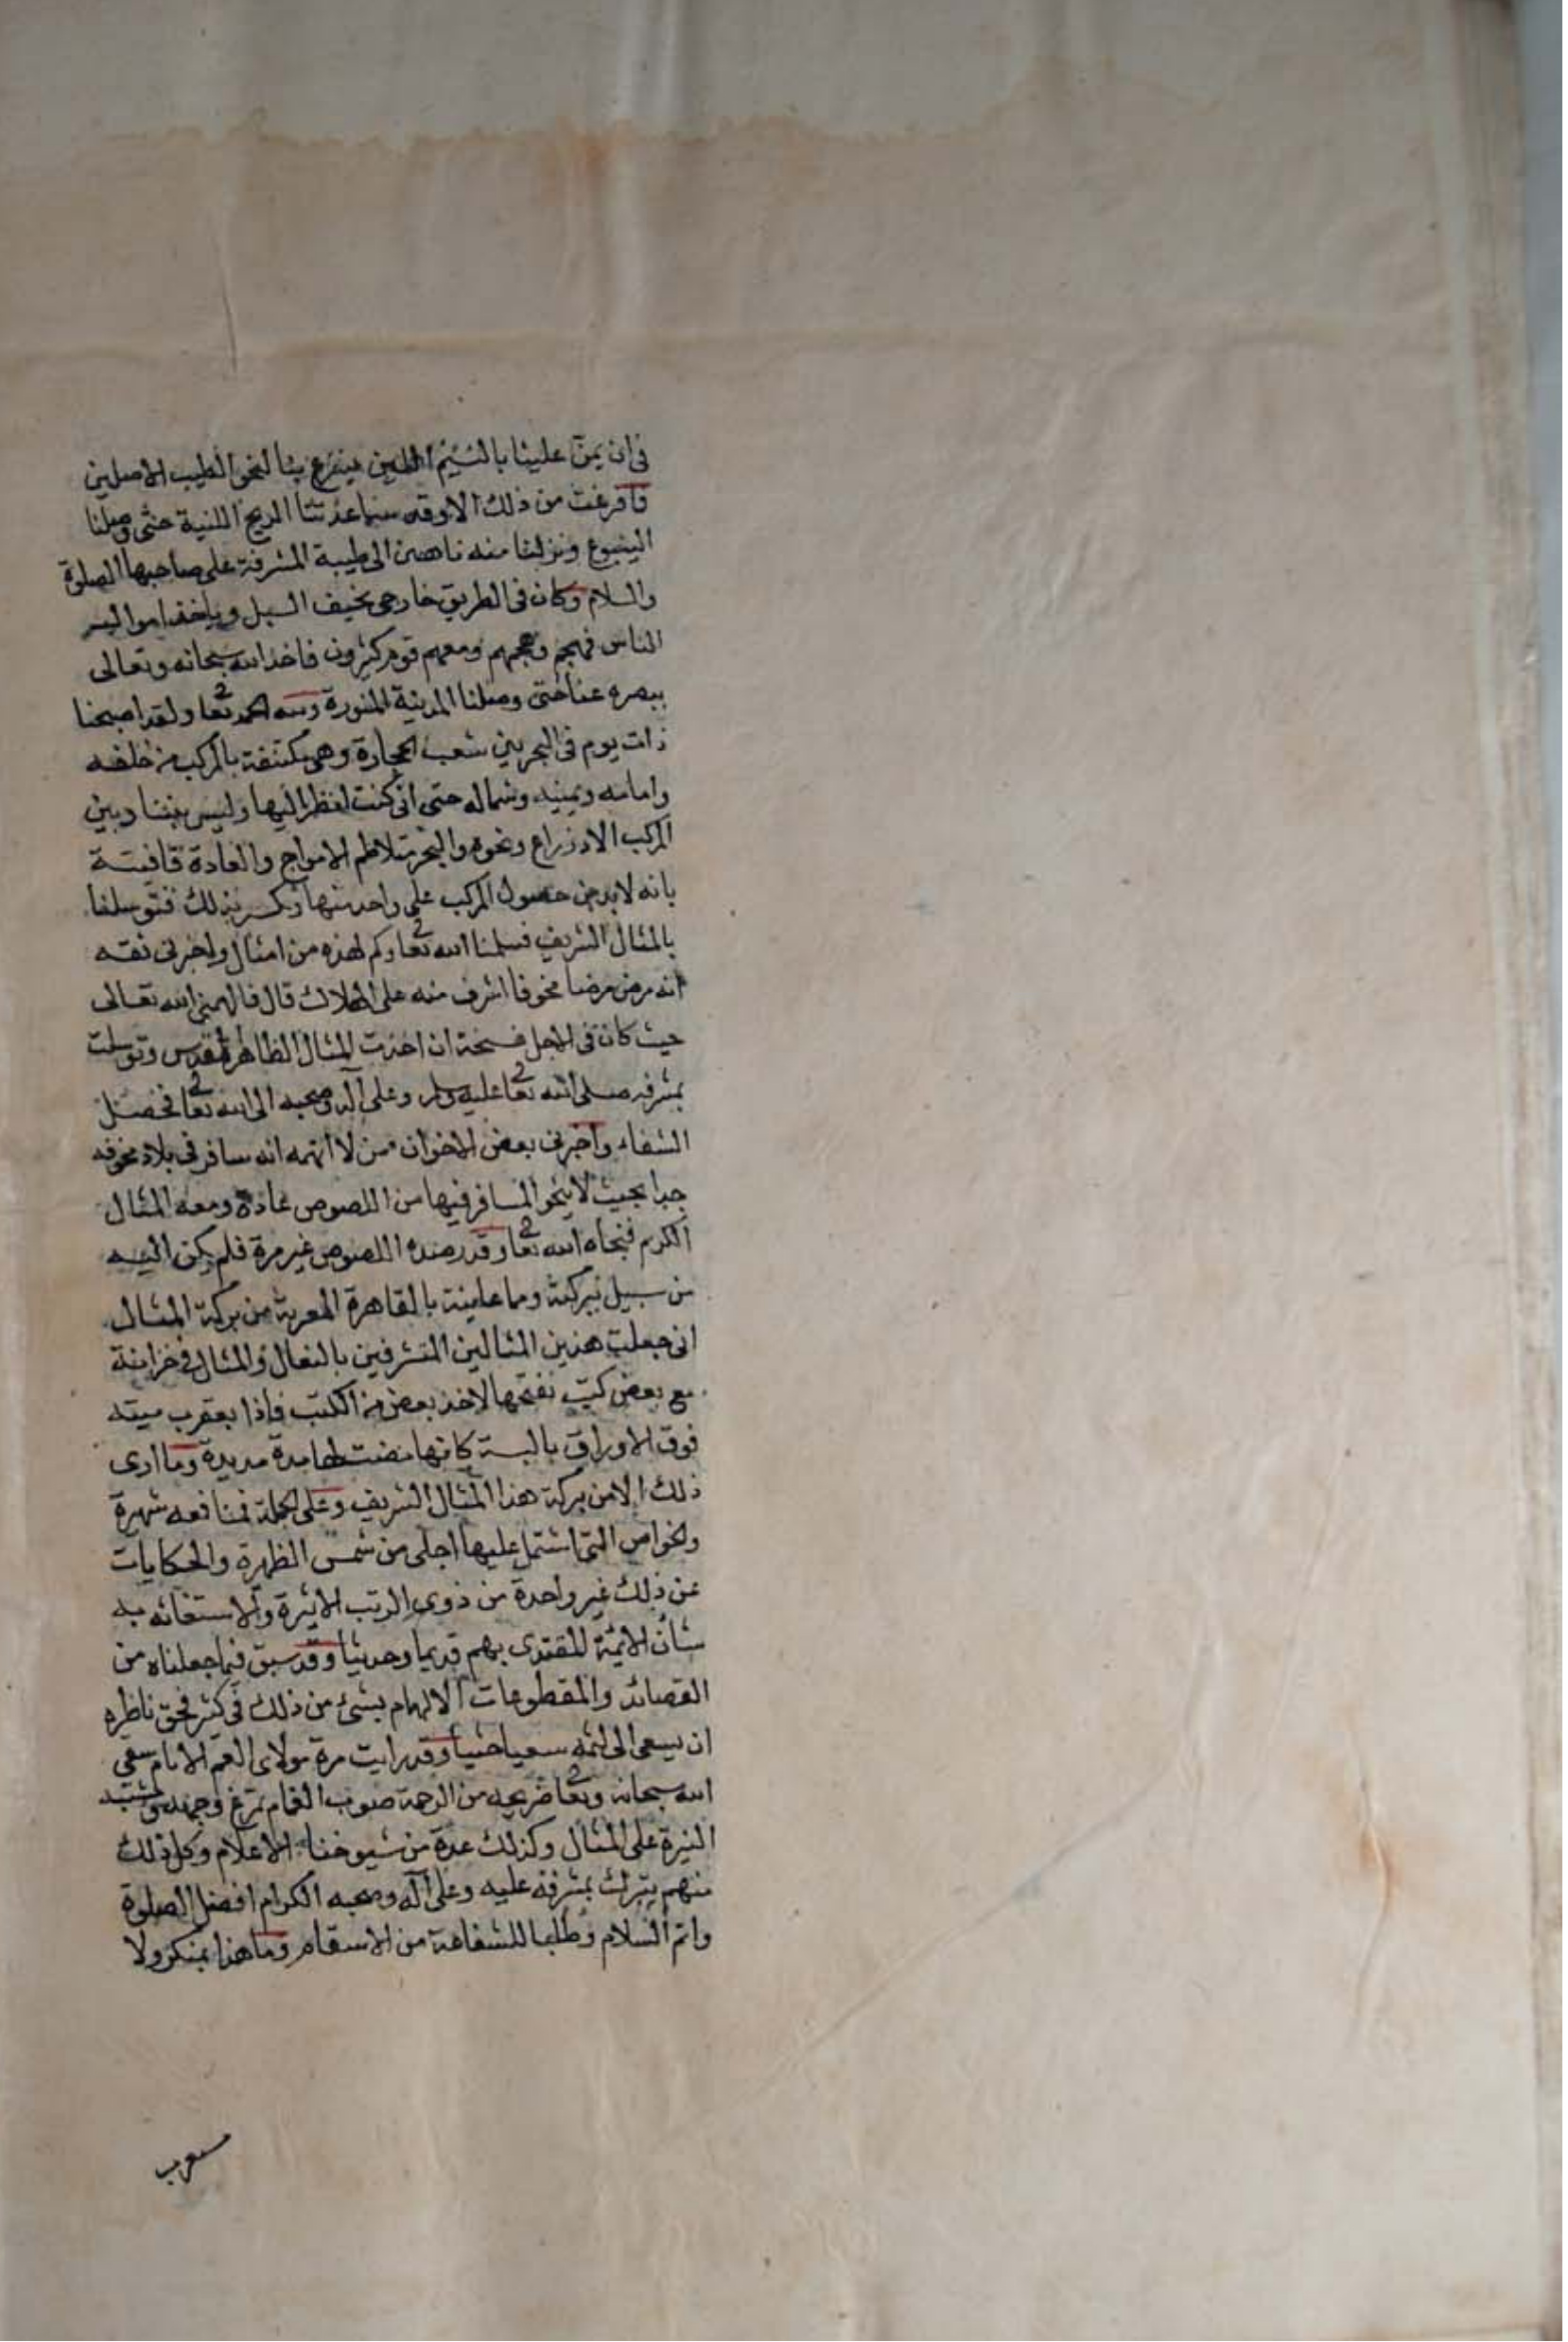 في ان يمنّ علينا بالنسيم اللين فينزع بنا لنحو الطيب الاصلين
فما فرغت من ذلك الا وقد ساعدتنا الريح اللينية حتى وصلنا
الينبوع ونزلنا منه ناهضين الى طيبة المشرفة على صاحبها الصلوة
والسلام وكان فى الطريق خارجى يخيف السبل وياخذ اموال
الناس فهجم ومعهم قوم كثيرون فاخذ الله سبحانه وتعالى
ببصره عنا حتى وصلنا المدينة المنورة ولله الحمد تعا ولقد اصبحنا
ذات يوم فى البحر بين شعب الحجارة وهى مكتنفة بالمركب من خلفه
وامامه ويمينه وشماله حتى انى كنت انظر اليها وليس بيننا وبين
المركب الا ذراع ونحوه والبحر متلاطم الامواج والعادة قاضية
بانه لا بد من حصول المركب على واحد منها وكسر بذلك فتوسلنا
بالمثال الشريف فسلمنا الله تعا وكم لهذه من امثال واخبرنى ثقه
انه مرض مرضا مخوفا اشرف منه على الهلاك قال فالهمنى الله تعالى
حيث كان فى الاجل فسحة ان اخذت المثال الطاهر المقدس وتوسلت
بمشرفه صلى الله تعا عليه وسلم وعلى آله وصحبه الى الله تعا فحصل
الشفاء واخبرنى بعض الاخوان ممن لا اتهمه انه سافر فى بلاد مخوفه
جدا بحيث لا ينجو المسافر فيها من اللصوص عادة ومعه المثال
الكريم فنجاه الله تعا وقد رصده اللصوص غير مرة فلم يكن اليه
من سبيل ببركته ومما عاينته بالقاهرة المعزية من بركة المثال
انى جعلت هذين المثالين المتشرفين بالنعال والمثال فى خزانة
مع بعض كتب نفتحها لاخذ بعض من الكتب فاذا بعقرب ميته
فوق الاوراق يابسة كانها مضت لها مدة مديدة وما ارى
ذلك الا من بركة هذا المثال الشريف وعلى الجملة فمنافعه شهيرة
ولخواص التى اشتمل عليها اجلى من شمس الظهرة والحكايات
عن ذلك غير واحدة من ذوى الرتب الاثيرة والاستغاثه به
شأن الائمة المقتدى بهم قديما وحديثا وقد سبق فيما جعلناه من
القصائد والمقطوعات الالهام بشئ من ذلك فى كثير فحق ناظره
ان يسعى الى لثمه سعيا حثيثا وقد رايت مرة مولاى العم الامام سقى
الله سبحانه وتعا ضريحه من الرحمة صوب الغمام يمرغ وجهه وشيبته
النيرة على المثال وكذلك عدة من شيوخنا الاعلام وكل ذلك
منهم تبرك بمشرفة عليه وعلى آله وصحبه الكرام افضل الصلوة
واتم السلام وطلبا للشفاعة من الاسقام وما هذا بمنكر ولا